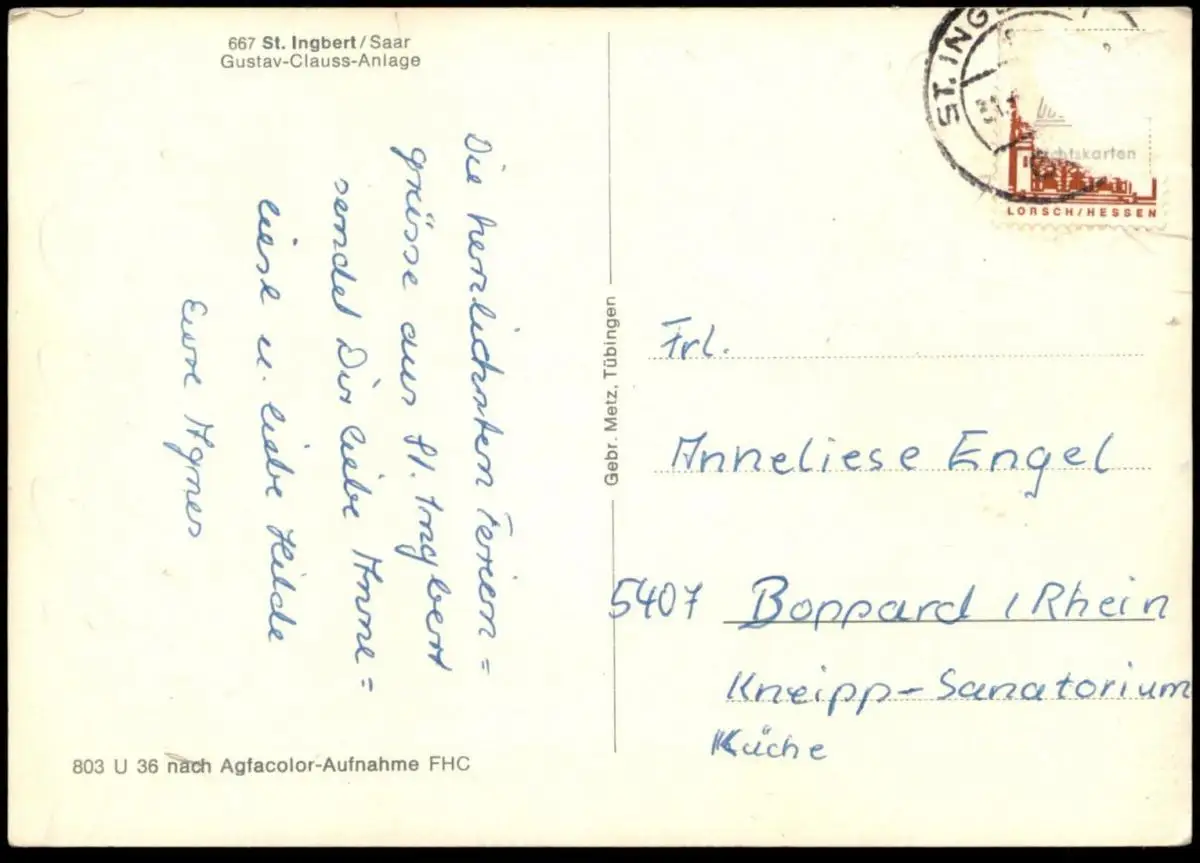 667 St. Ingbert/Saar
Gustav-Clauss-Anlage
Die herzlichsten Ferien=
grüsse aus St. Ingbert
sendet Dir liebe Anne=
liese u. liebe Hilde
Eure Agnes
803 U 36 nach Agfacolor-Aufnahme FHC
Gebr. Metz, Tübingen
ST. ING
LORSCH/HESSEN
Frl.
Anneliese Engel
5407 Boppard/Rhein
Kneipp-Sanatorium
Küche